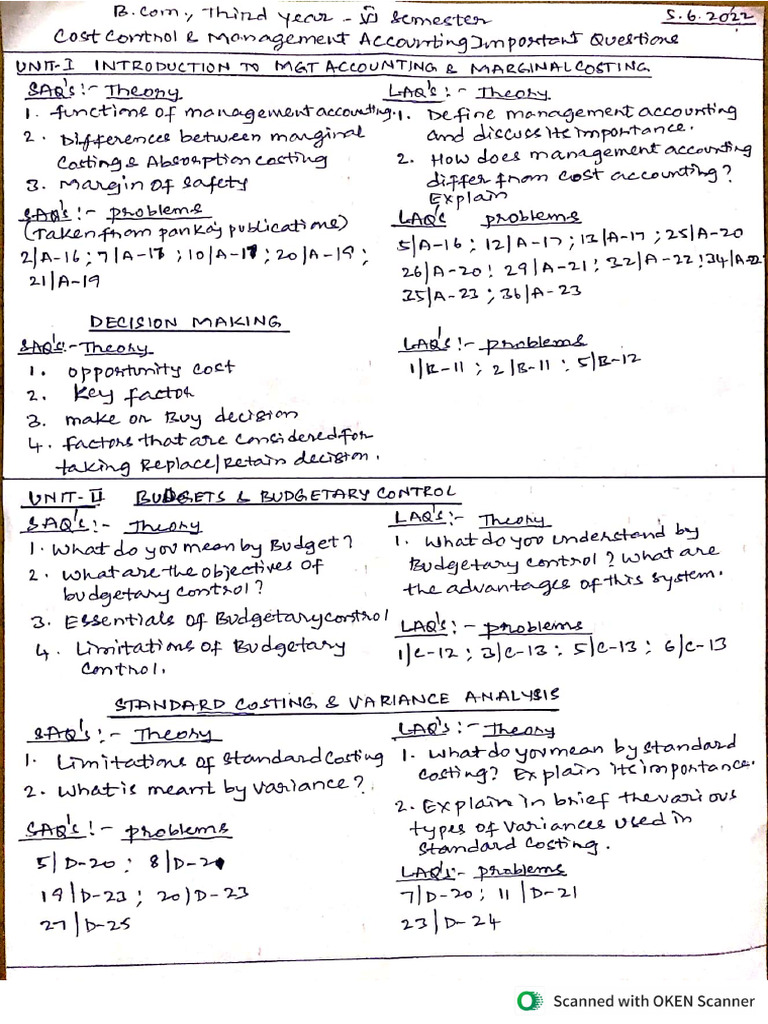 B.Com., Third Year - VI Semester 5.6.2022
Cost Control & Management Accounting Important Questions
UNIT-I INTRODUCTION TO MGT ACCOUNTING & MARGINAL COSTING
SAQ's :- Theory
1. functions of management accounting.
2. Differences between marginal
Costing & Absorption costing
3. Margin of Safety
SAQ's :- problems
(Taken from pankaj publications)
2|A-16 ; 7|A-17 ; 10|A-17 ; 20|A-19 ;
21|A-19
LAQ's :- Theory
1. Define management accounting
and discuss its importance.
2. How does management accounting
differ from cost accounting?
Explain
LAQ's problems
5|A-16 ; 12|A-17 ; 13|A-17 ; 25|A-20
26|A-20 ; 29|A-21 ; 32|A-22 ; 34|A-22
35|A-23 ; 36|A-23
DECISION MAKING
SAQ's :- Theory
1. opportunity cost
2. Key factor
3. make or Buy decision
4. factors that are considered for
taking Replace/Retain decision.
LAQ's :- problems
1|B-11 ; 2|B-11 ; 5|B-12
UNIT-II BUDGETS & BUDGETARY CONTROL
SAQ's :- Theory
1. What do you mean by Budget?
2. what are the objectives of
budgetary control?
3. Essentials of Budgetary control
4. Limitations of Budgetary
Control.
LAQ's :- Theory
1. what do you understand by
Budgetary control? what are
the advantages of this system.
LAQ's :- problems
1|C-12 ; 3|C-13 ; 5|C-13 ; 6|C-13
STANDARD COSTING & VARIANCE ANALYSIS
SAQ's :- Theory
1. Limitations of standard Costing
2. what is meant by variance?
SAQ's :- problems
5|D-20 ; 8|D-20
19|D-23 ; 20|D-23
27|D-25
LAQ's :- Theory
1. what do you mean by standard
costing? Explain its importance.
2. Explain in brief the various
types of variances used in
standard costing.
LAQ's :- problems
7|D-20 ; 11|D-21
23|D-24
Scanned with OKEN Scanner